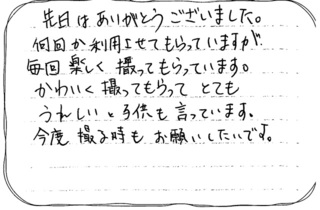 先日はありがとうございました。
何回か利用させてもらっていますが
毎回楽しく撮ってもらっています。
かわいく撮ってもらって とても
うれしいと子供も言っています。
今度撮る時も お願いしたいです。